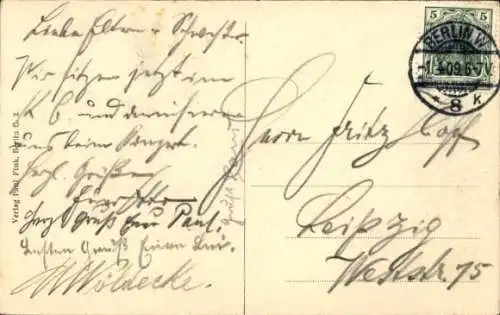 Liebe Eltern u. Schwester.
Wir sitzen jetzt im
K. C. und amüsieren
uns beim Konzert.
Herzl. Grüßen
Euer Otto
Herz. Gruß Eur Paul.
Besten Gruß Eurer
Woldecke.
Verlag Paul Fink, Berlin O. 2
5 5
BERLIN W.
1.4.09.6-7V
* 8 k
Herrn Fritz
Leipzig
Weststr. 75